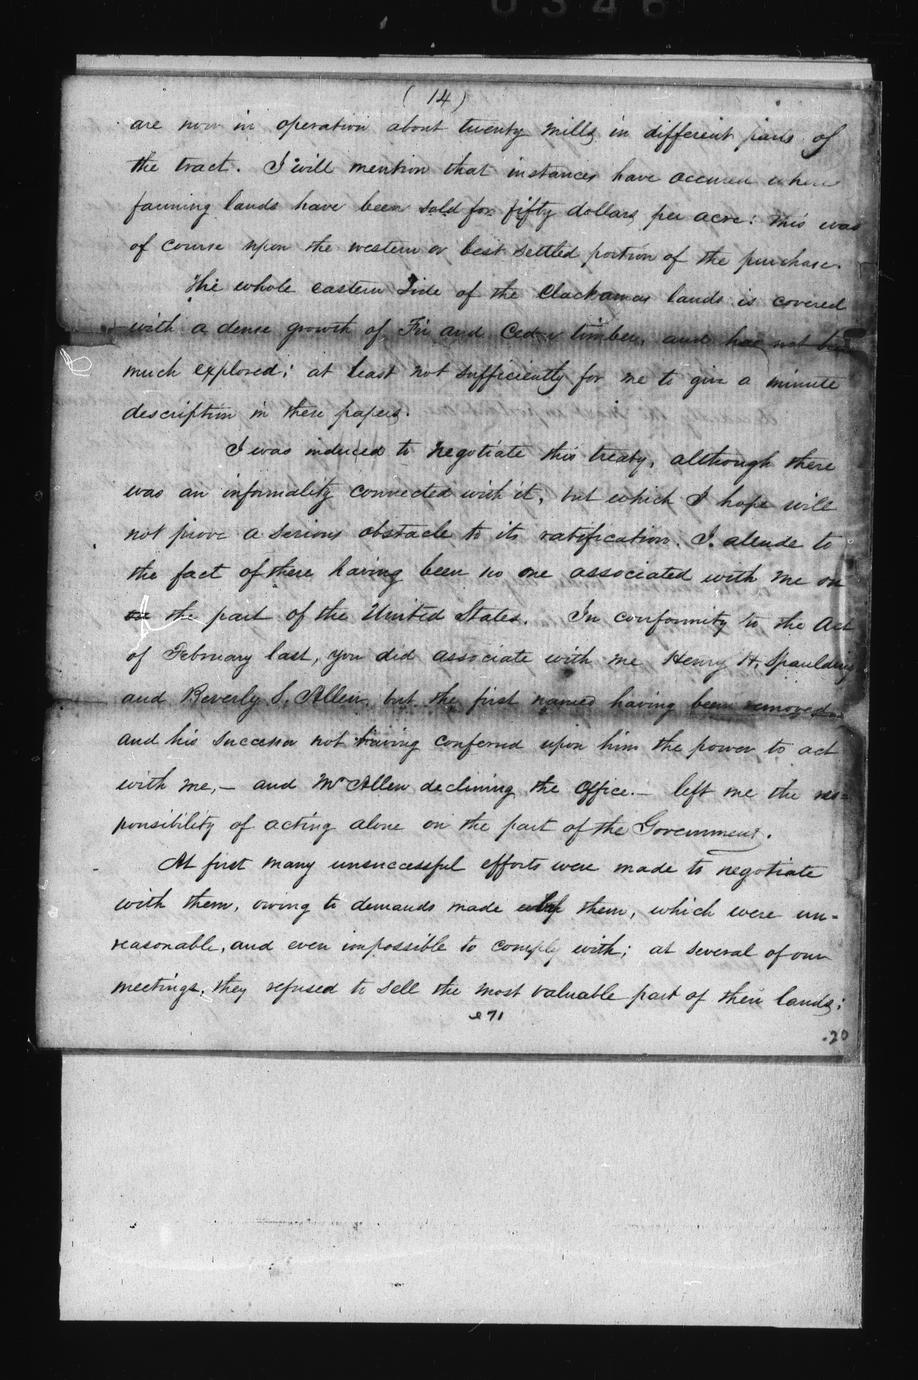 0346
(14)
are now in operation about twenty mills in different parts of
the tract. I will mention that instances have occured when
farming lands have been sold for fifty dollars per acre: this was
of course upon the western or best settled portion of the purchase.
The whole eastern side of the Clackamas lands is covered
with a dense growth of Fir and Cedar timber, and has not been
much explored; at least not sufficiently for me to give a minute
description in these papers.
I was induced to negotiate this treaty, although there
was an informality connected with it, but which I hope will
not prove a serious obstacle to its ratification. I alude to
the fact of there having been no one associated with me on
on the part of the United States. In conformity to the Act
of February last, you did associate with me Henry H. Spaulding
and Beverly S. Allen, but the first named having been removed
and his successor not having conferred upon him the power to act
with me, — and Mr Allen declining the office. — left me the res=
ponsibility of acting alone on the part of the Government.
At first many unsuccessful efforts were made to negotiate
with them, owing to demands made by them, which were un-
reasonable, and even impossible to comply with; at several of our
meetings, they refused to sell the most valuable part of their lands;
271
.20